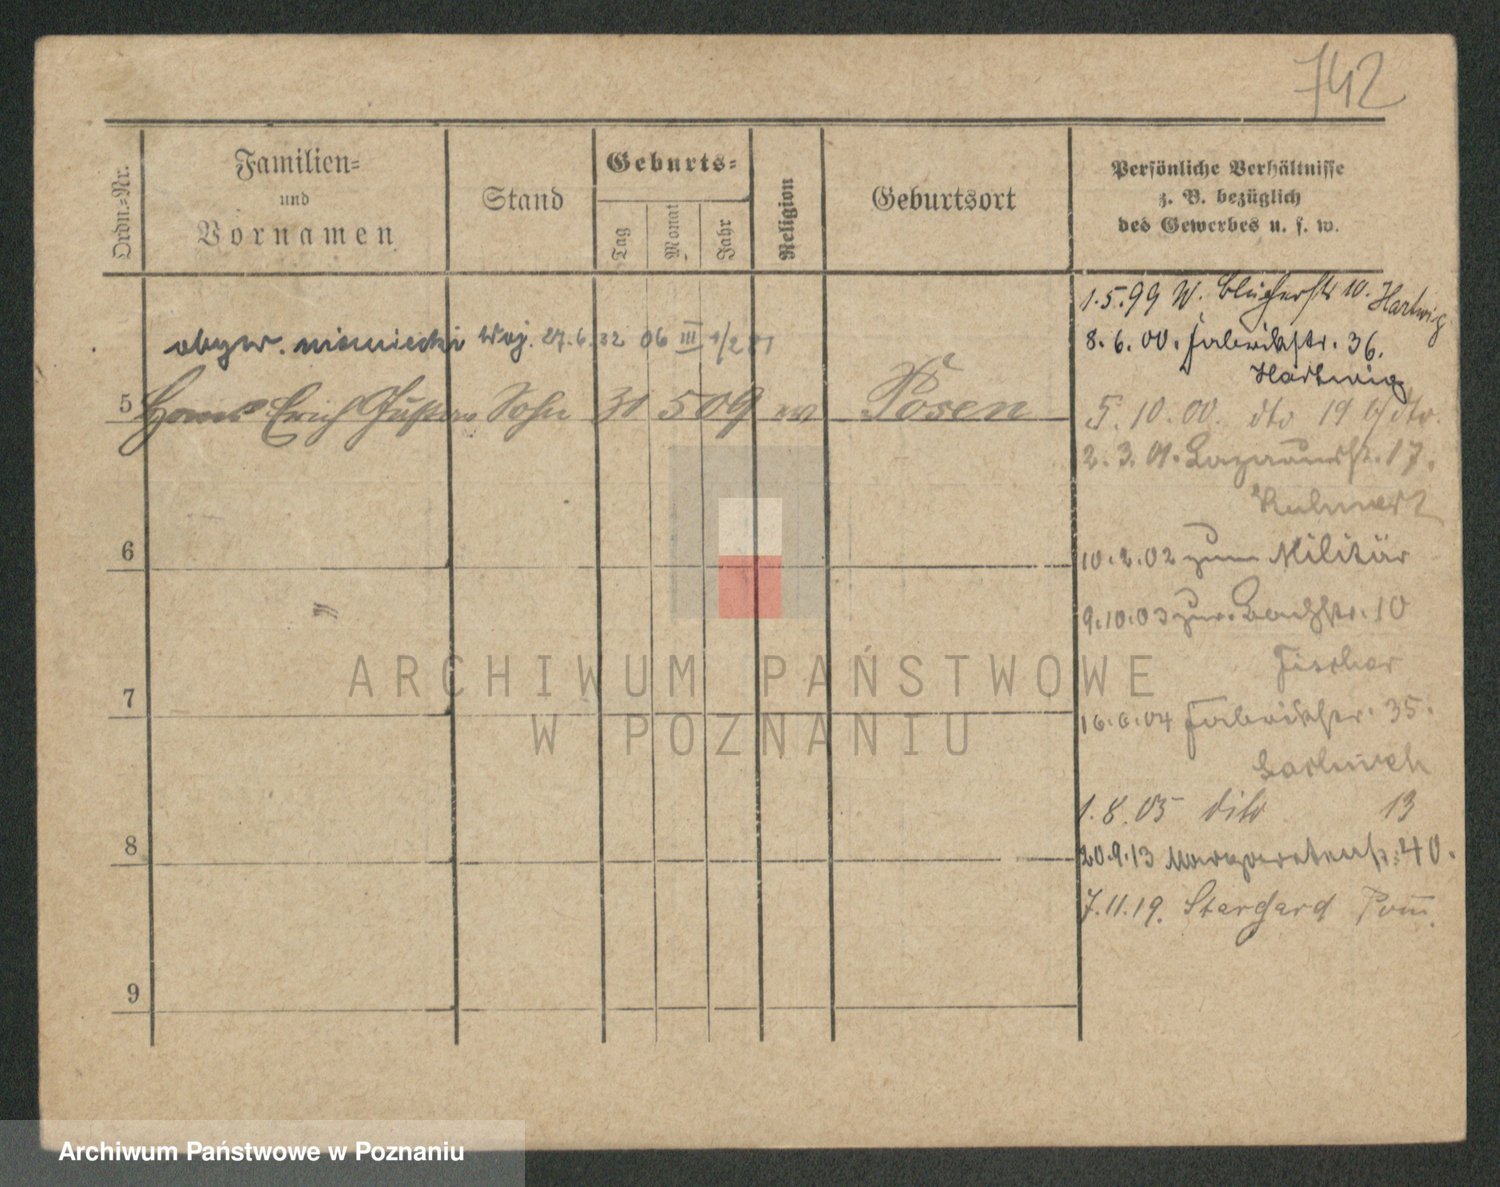 742
Ordn.-Nr.
Familien-
und
Vornamen
Stand
Geburts-
Tag
Monat
Jahr
Religion
Geburtsort
Persönliche Verhältnisse
z. B. bezüglich
des Gewerbes u. s. w.
1.5.99 W. Blücherstr 10. Hartwig
obyw. niemiecki Woj. 27.6.22 06 III
8.6.00. Fabrikstr. 36.
Hartwig
5 Hans Erich Gustav Sohn 31 5 09 ev Posen
5.10.00. dto 19
2.3.01. 17.
6
10.2.02 zum Militär
9.10.03 zur. 10
Fischer
7
16.6.04 Fabrikstr. 35.
1.8.05 dito 13
8
20.9.13 Margaretenstr. 40.
7.11.19. Stargard Pom̅.
9
ARCHIWUM PAŃSTWOWE
W POZNANIU
Archiwum Państwowe w Poznaniu